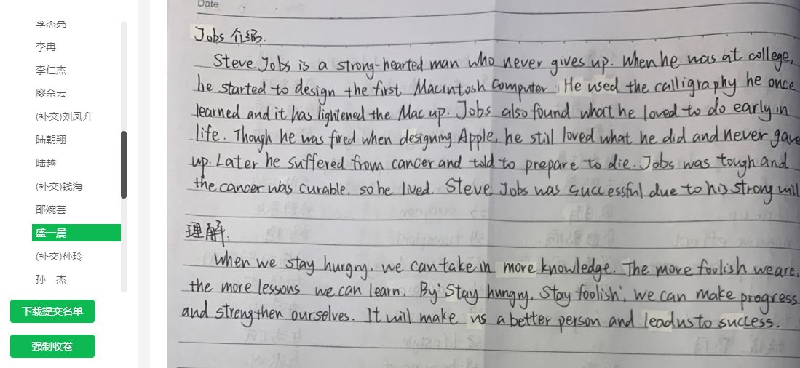 Date
李冉
李仁杰
廖余云
(补交)刘凤升
陆朝翔
陆艳
(补交)钱海
邵婉芸
盛一晨
(补交)孙玲
孙 杰
下载提交名单
强制收卷
Jobs 介绍.
Steve Jobs is a strong-hearted man who never gives up. When he was at college,
he started to design the first Macintosh Computer. He used the calligraphy he once
learned and it has lightened the Mac up. Jobs also found what he loved to do early in
life. Though he was fired when designing Apple, he still loved what he did and never gave
up. Later he suffered from cancer and told to prepare to die. Jobs was tough and
the cancer was curable, so he lived. Steve Jobs was successful due to his strong will
理解.
When we stay hungry, we can take in more knowledge. The more foolish we are,
the more lessons we can learn. By 'Stay hungry, Stay foolish', we can make progress
and strengthen ourselves. It will make us a better person and lead us to success.